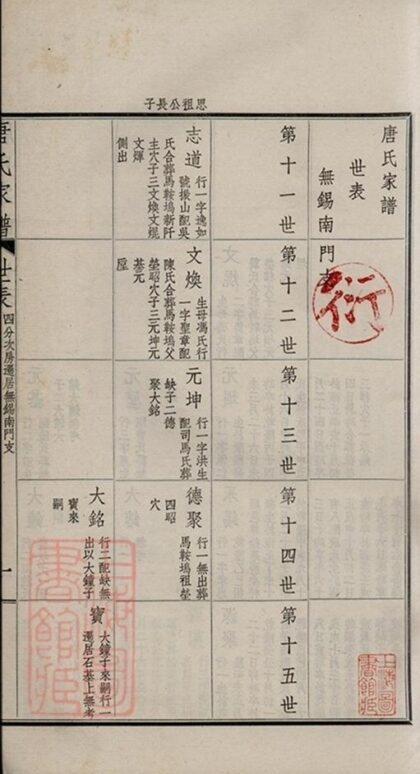 思祖公長子
唐氏家譜
世表
無錫南門支
衍
第十一世
第十二世
第十三世
第十四世
第十五世
志道
行一字逸如
號振山配吳
氏合葬馬鞍塢新阡
主穴子三文煥文焜
文燡
側出
文煥
生母馮氏行
一字聖章配
陳氏合葬馬鞍塢父
塋昭穴子三元坤元
基元
元坤
行一字洪生
配司馬氏葬
缺子二德
聚大銘
德聚
行一無出葬
馬鞍塢祖塋
四昭
穴
大銘
行二配缺無
出以大鐘子
寶來
嗣
寶
大鐘子來嗣行一
遷居石基上無考
唐氏家譜
世表
四分次房遷居無錫南門支
一
上海圖
書館藏